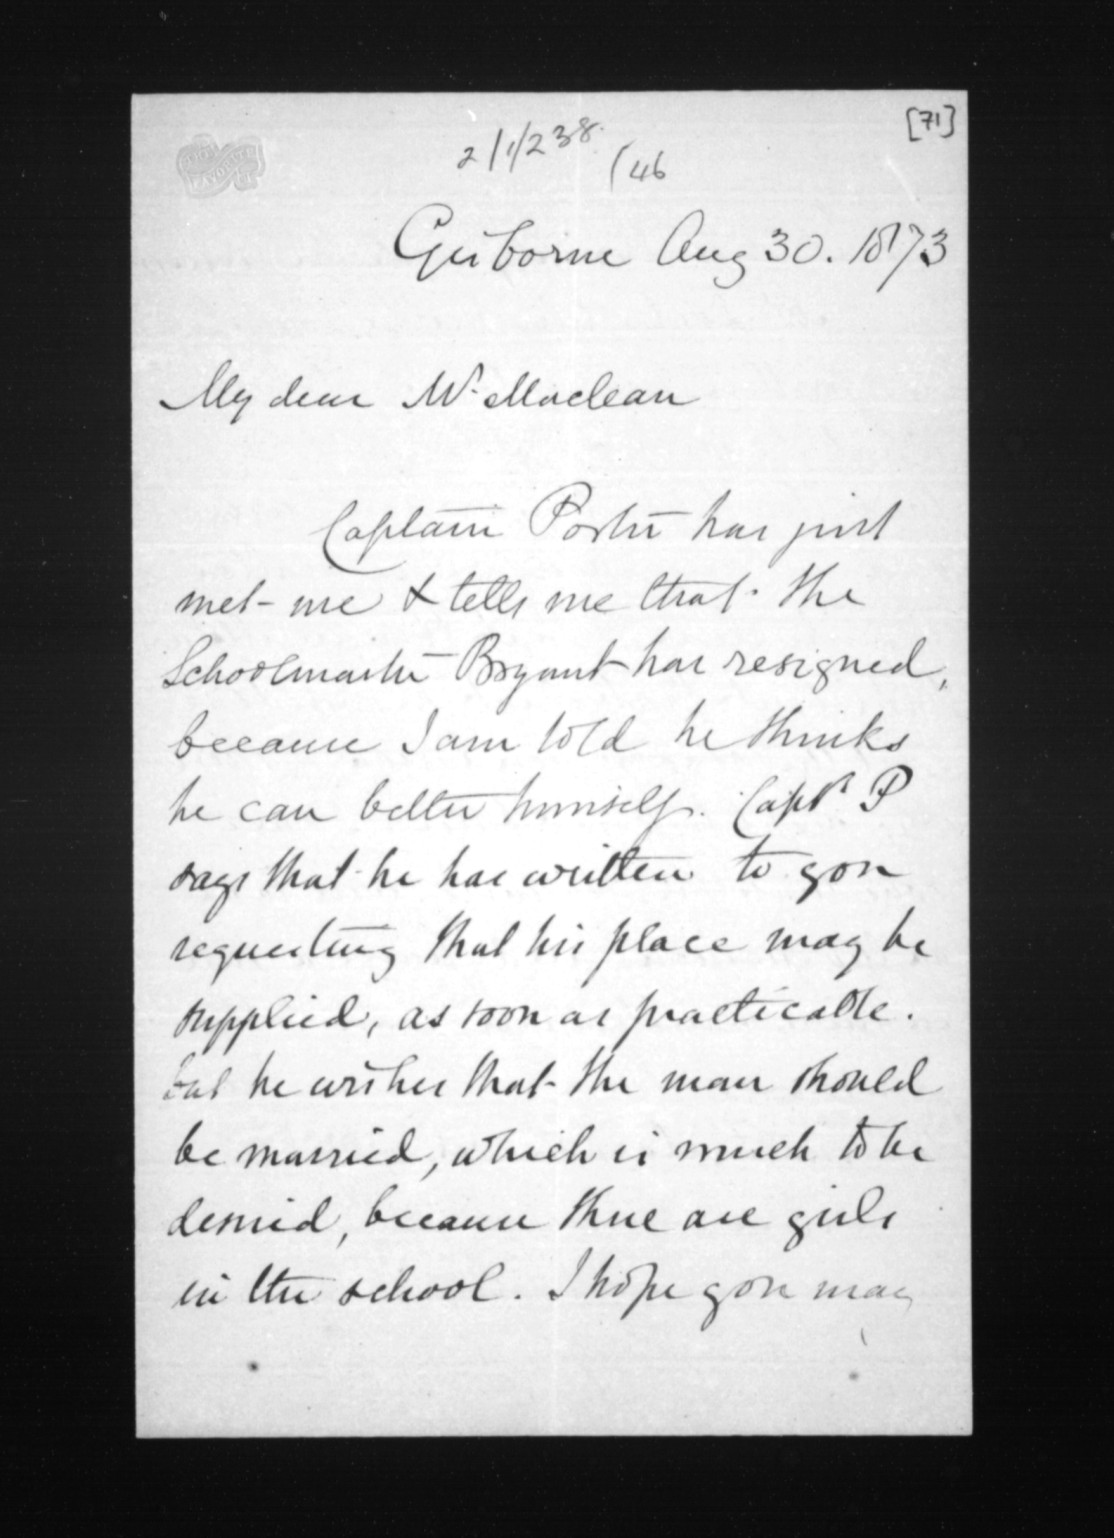 [71]
2/1/238.
(46
Gisborne Aug 30. 1873
My dear Mr. Maclean
Captain Porter has just
met me & tells me that the
Schoolmaster Bryant has resigned,
because I am told he thinks
he can better himself. Capt P
says that he has written to you
requesting that his place may be
supplied, as soon as practicable.
but he wishes that the man should
be married, which is much to be
desired, because there are girls
in the school. I hope you may